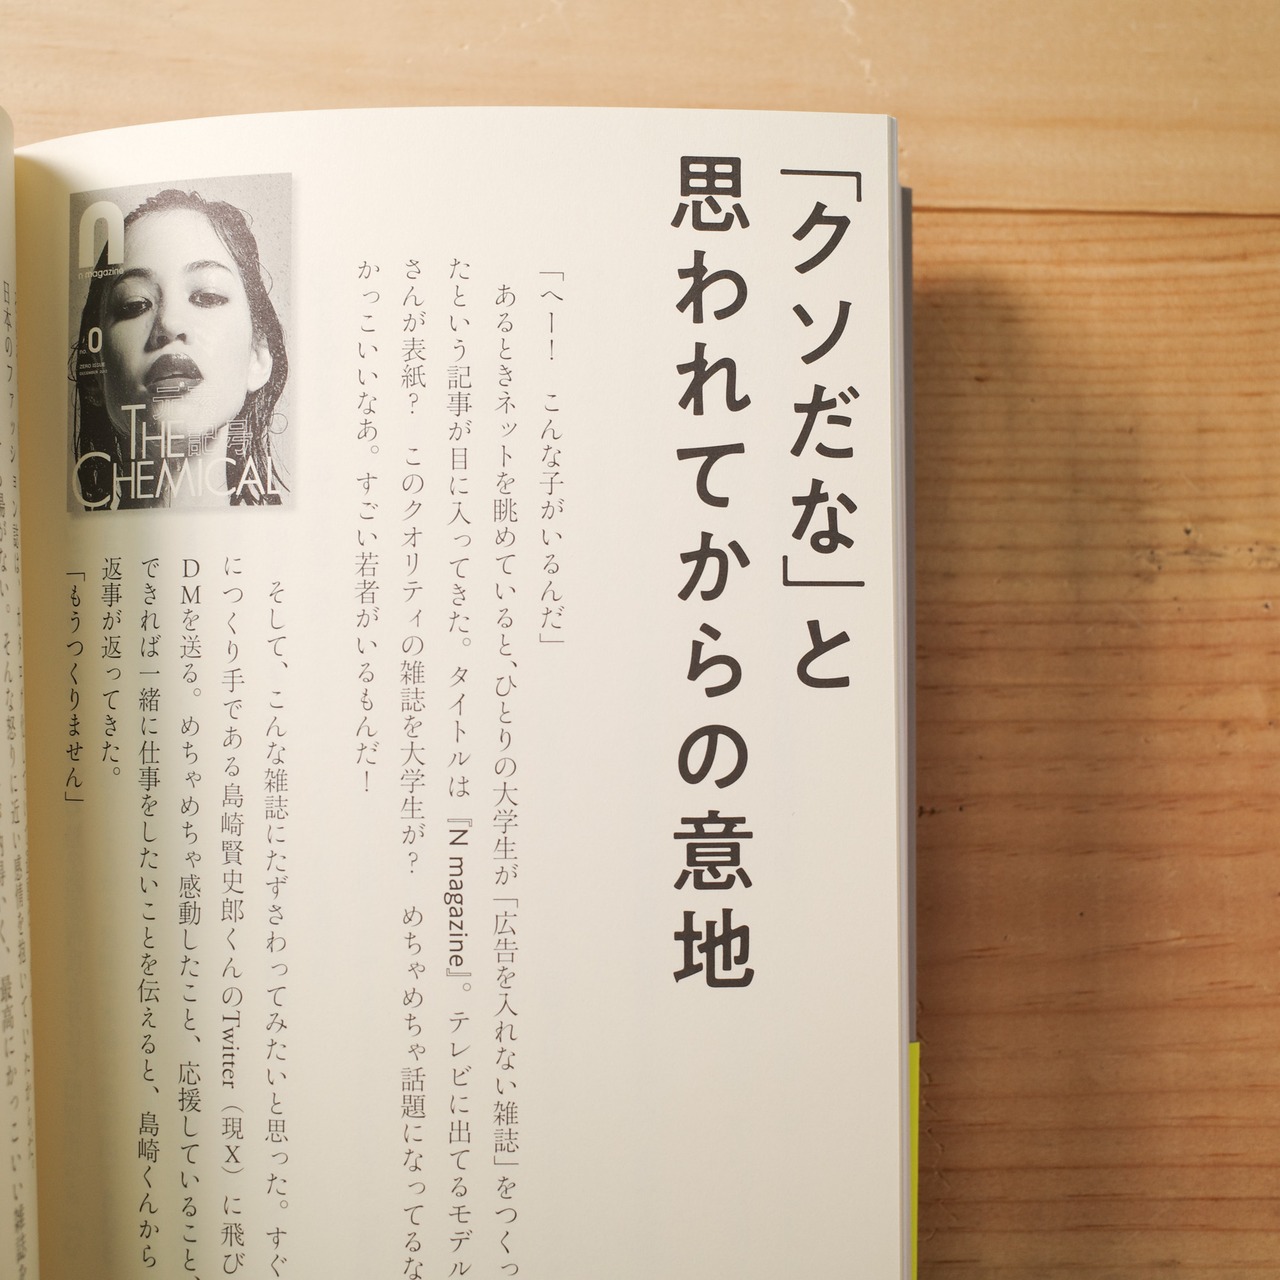 「クソだな」と
思われてからの意地
「へー！　こんな子がいるんだ」
あるときネットを眺めていると、ひとりの大学生が「広告を入れない雑誌」をつくっ
たという記事が目に入ってきた。タイトルは『N magazine』。テレビに出てるモデル
さんが表紙？　このクオリティの雑誌を大学生が？　めちゃめちゃ話題になってるな
かっこいいなあ。すごい若者がいるもんだ！
そして、こんな雑誌にたずさわってみたいと思った。すぐ
につくり手である島崎賢史郎くんのTwitter（現X）に飛び
DMを送る。めちゃめちゃ感動したこと、応援していること、
できれば一緒に仕事をしたいことを伝えると、島崎くんから
返事が返ってきた。
「もうつくりません」
n
n magazine
0
ZERO ISSUE
THE
記号
CHEMICAL
日本のファッション誌は、
がない。そんな怒りに近い感情を抱いていたからだ。
最高にかっこいい雑誌を